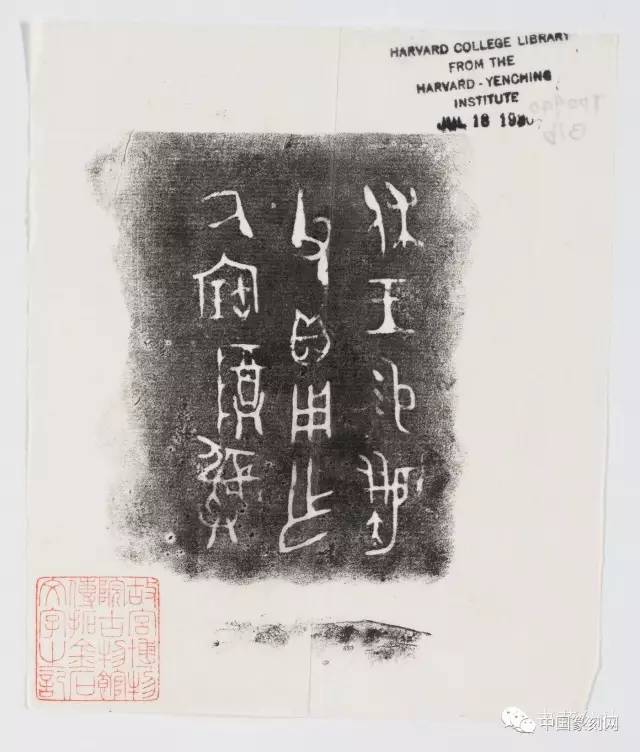 HARVARD COLLEGE LIBRARY
FROM THE
HARVARD-YENCHING
INSTITUTE
JUL 18 19
休王易
父貝用乍
厥寶尊彝
故宮博物
院古物館
傳拓金石
文字之記
中国篆刻网